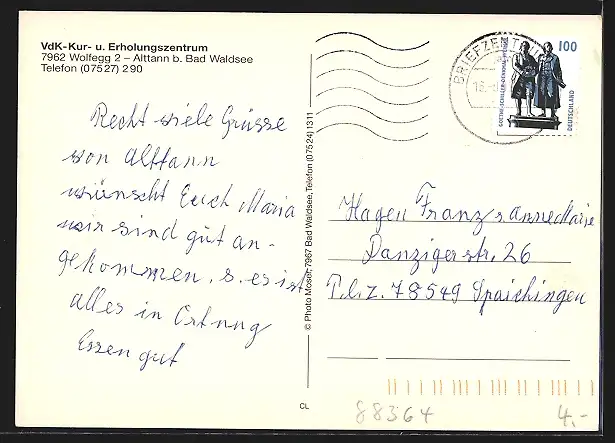 VdK-Kur- u. Erholungszentrum
7962 Wolfegg 2 – Alttann b. Bad Waldsee
Telefon (07527) 290
Recht viele Grüsse
von Alttann
wünscht Euch Maria
wir sind gut an-
gekommen, s. es ist
alles in Ortnung
Essen gut
© Photo Moser, 7967 Bad Waldsee, Telefon (07524) 1311
CL
BRIEFZENTRUM
100
GOETHE-SCHILLER-DENKMAL WEIMAR
DEUTSCHLAND
Hagen Franz s AnneMarie
Danzigerstr. 26
P.l.z. 78549 Spaichingen
88364
4,-